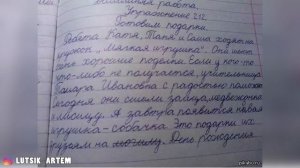 Домашняя работа.
Упражнение 212.
Готовим подарки.
Ребята Катя, Таня и Саша ходят на
кружок „Мягкая игрушка". Они шьют
очень хорошие поделки. Если у кого-то
что-либо не получается, учительница
Тамара Ивановна с радостью поможет.
Сегодня они сшили зайца, медвежонка
и лисицу. А завтра появится новая
игрушка - собачка. Это подарки их
друзьям на могилу. День рождения
LUTSIK ARTEM
pikabu.ru